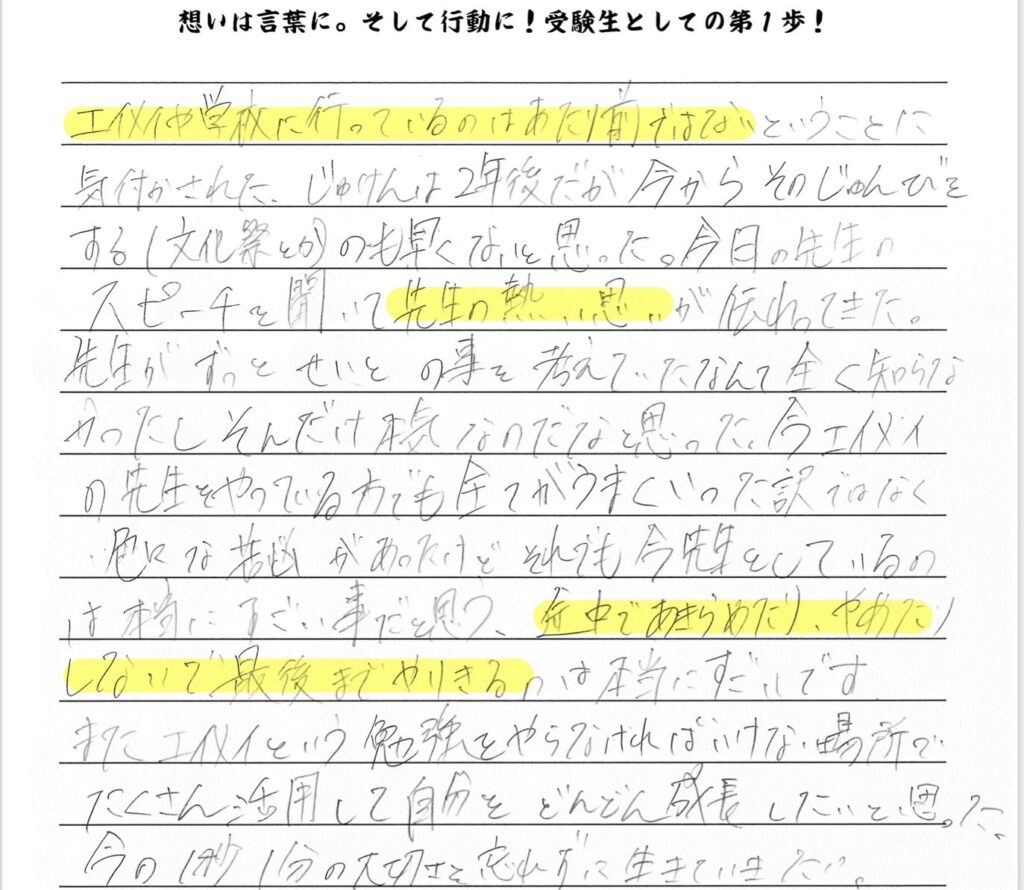 想いは言葉に。そして行動に！受験生としての第１歩！
エイメイや学校に行っているのはあたり前ではないということに
気付かされた、じゅけんは2年後だが今からそのじゅんびを
する(文化祭とか)のも早くないと思った。今日の先生の
スピーチを聞いて先生の熱い思いが伝わってきた。
先生がずっとせいとの事を考えていたなんて全く知らな
かったしそんだけ本気なのだなと思った、今エイメイ
の先生をやっている方でも全てがうまくいった訳ではなく
色々な苦悩があったけどそれでも今先生をしているの
は本当にすごい事だと思う、途中であきらめたり、やめたり
しないで最後までやりきるのは本当にすごいです
またエイメイという勉強をやらなければいけない場所で
たくさん活用して自分をどんどん成長したいと思った、
今の1秒1分の大切さを忘れずに生きていきたい。